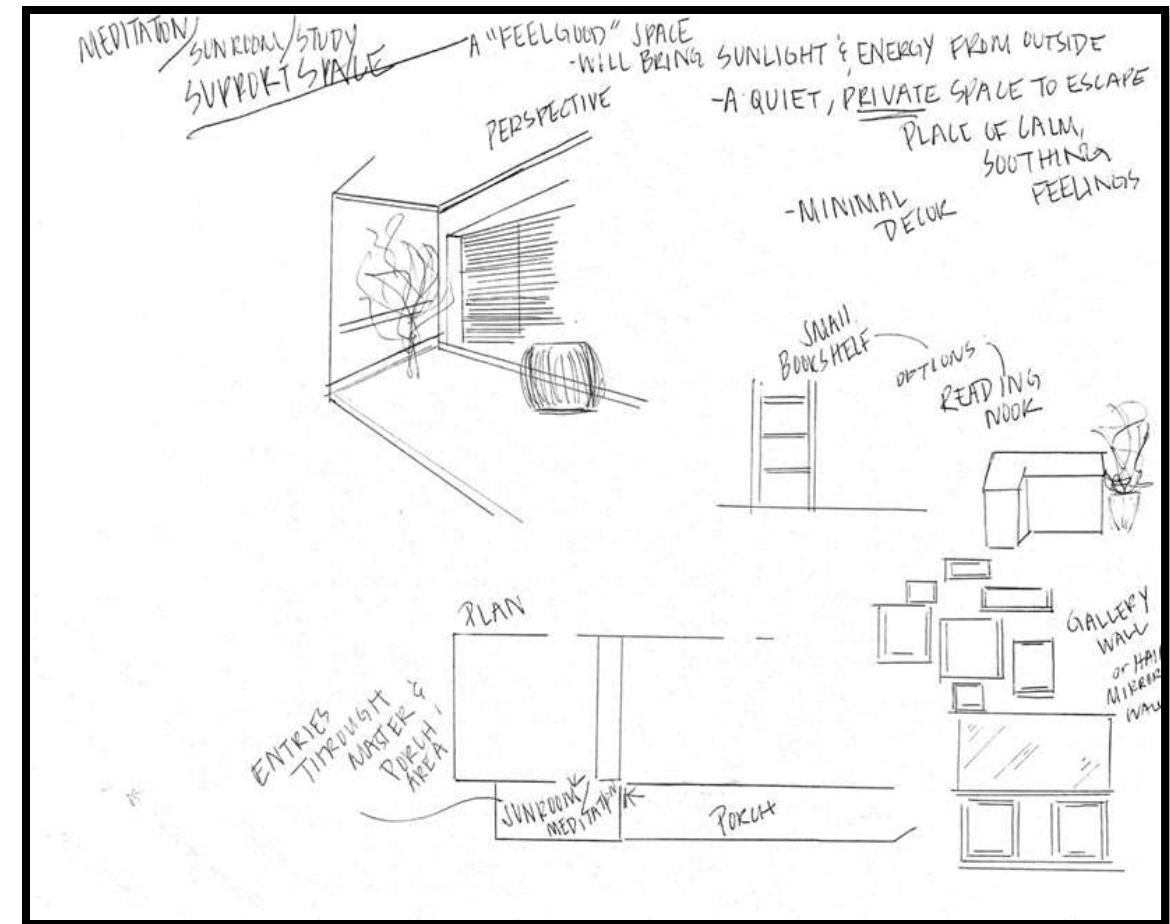 MEDITATION/
SUNROOM/STUDY
SUPPORT SPACE
A "FEELGOOD" SPACE
-WILL BRING SUNLIGHT & ENERGY FROM OUTSIDE
-A QUIET, PRIVATE SPACE TO ESCAPE
PLACE OF CALM,
SOOTHING
FEELINGS
-MINIMAL
DECOR
PERSPECTIVE
SMALL
BOOKSHELF
OPTIONS
READING
NOOK
PLAN
ENTRIES
THROUGH
MASTER &
PORCH
AREA
SUNROOM/
MEDITATION
PORCH
GALLERY
WALL
or HALF
MIRROR
WALL